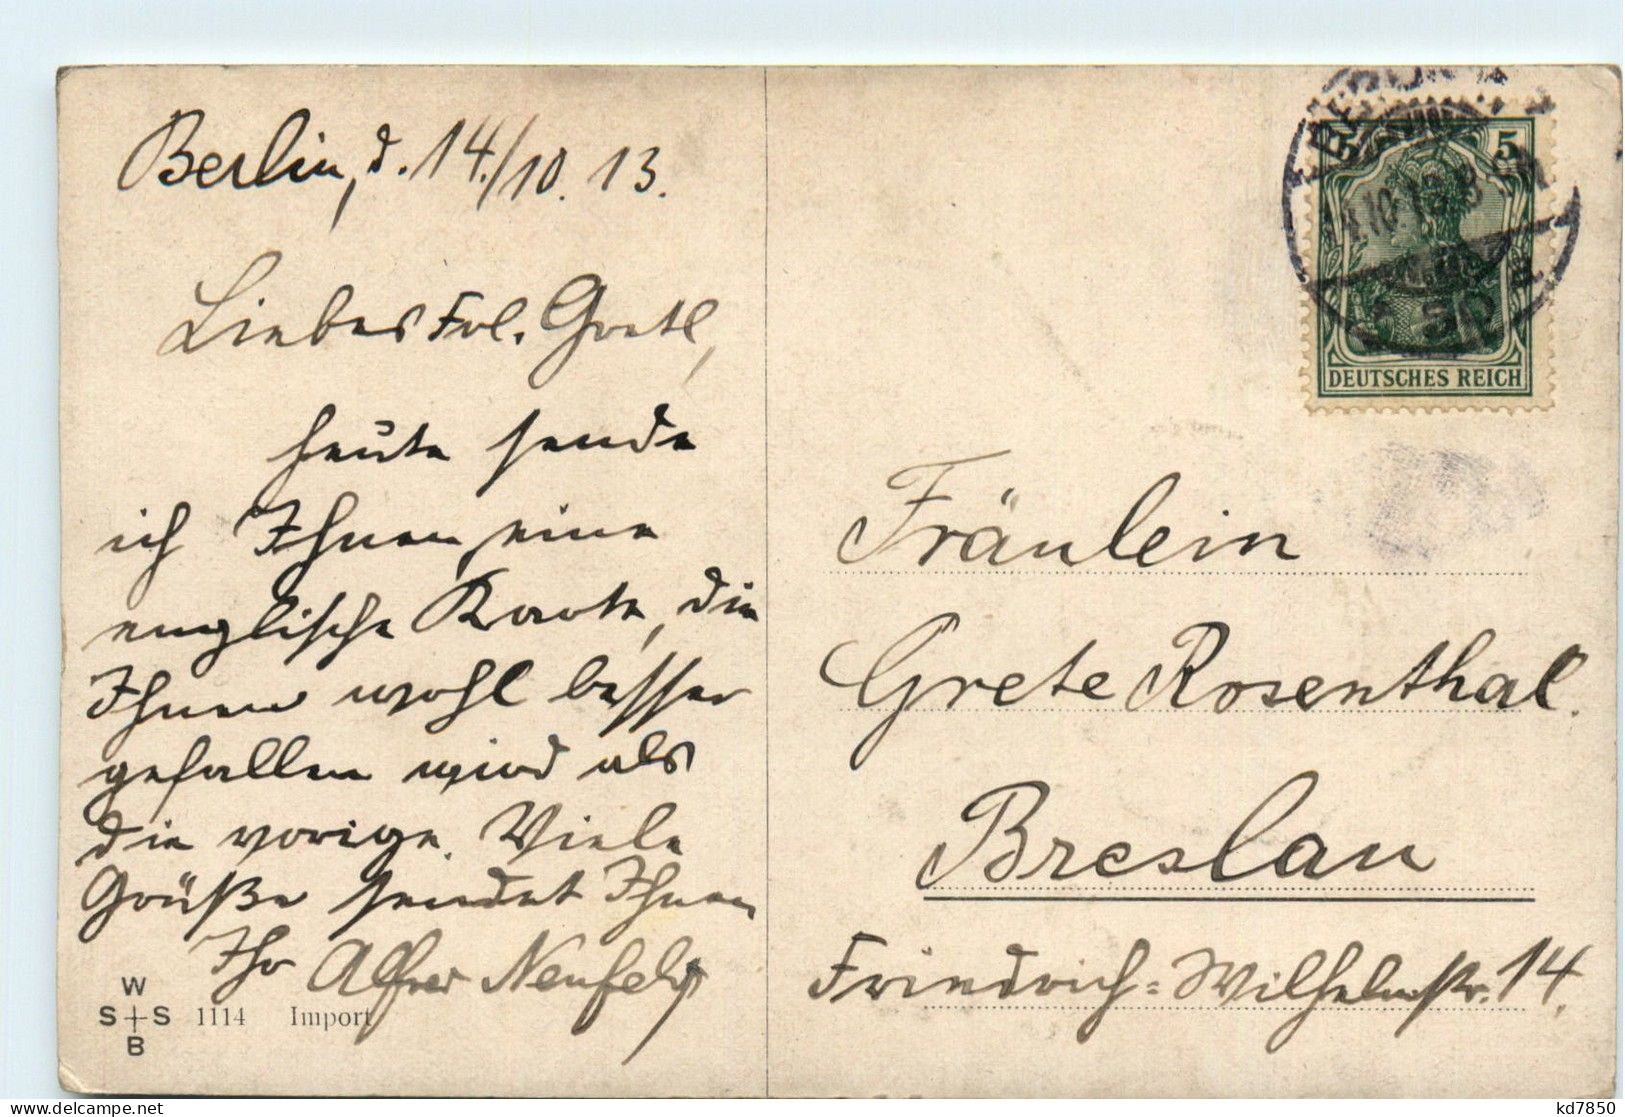 Berlin, d. 14./10. 13.
Liebes Frl. Gretl,
heute sende
ich Ihnen eine
englische Karte, die
Ihnen wohl besser
gefallen wird als
die vorige. Viele
Grüße sendet Ihnen
Ihr Alfred Neufeld
W
S S 1114 Import
B
5 5
BERLIN
14.10.13.8
50 a
DEUTSCHES REICH
Fräulein
Grete Rosenthal.
Breslau
Friedrich-Wilhelmstr. 14.
kd7850